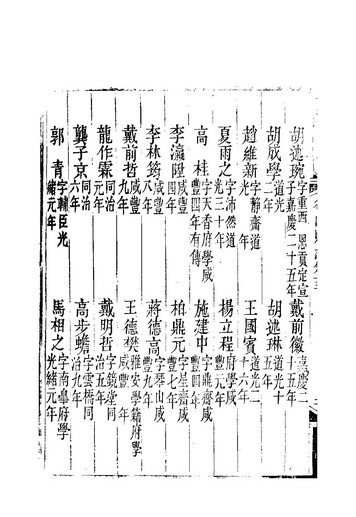 胡述琬字重西恩貢定宣子嘉慶二十五年戴前徽嘉慶二十五年
胡成學道光二年胡述琳道光十五年
趙維新字靜齋道光年王國賓道光二十六年
夏雨之字沛然道光三十年楊立程府學咸豐元年
高桂字天香府學咸豐四年有傳施建中字鼎齋咸豐四年
李瀛陞咸豐四年柏鼎元字星齋咸豐七年
李林筠咸豐八年蔣德高字琴山咸豐九年
戴前哲咸豐九年王德樊雅安學籍府學咸豐年
龍作霖同治元年戴明哲字鏡堂同治五年
龔子京同治六年高步蟾字雲橋同治九年
郭青字輔臣光緒元年馬相之字南皐府學光緒元年